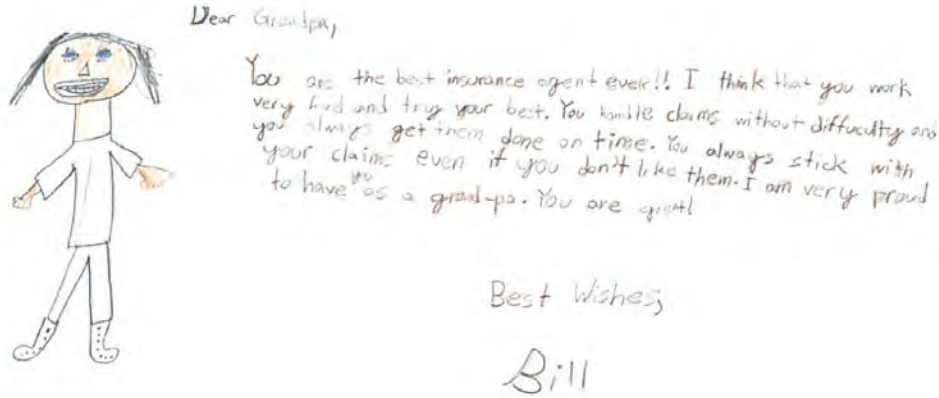 Dear Grandpa,
You are the best insurance agent ever!! I think that you work
very hard and try your best. You handle claims without diffuculty and
you always get them done on time. You always stick with
your claims even if you don't like them. I am very proud
to have you as a grand-pa. You are great!
Best Wishes,
Bill